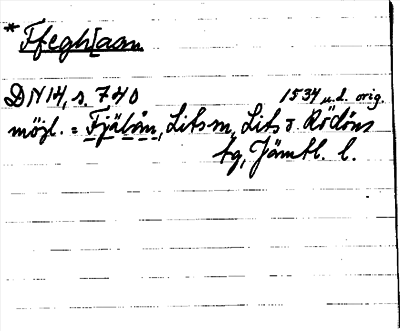 * Ffiegh[aan
DN 14, s. 740 1534 u.d. orig.
möjl. = Fjälån, Lits sn, Lits o. Rödöns
tg, Jämtl. l.